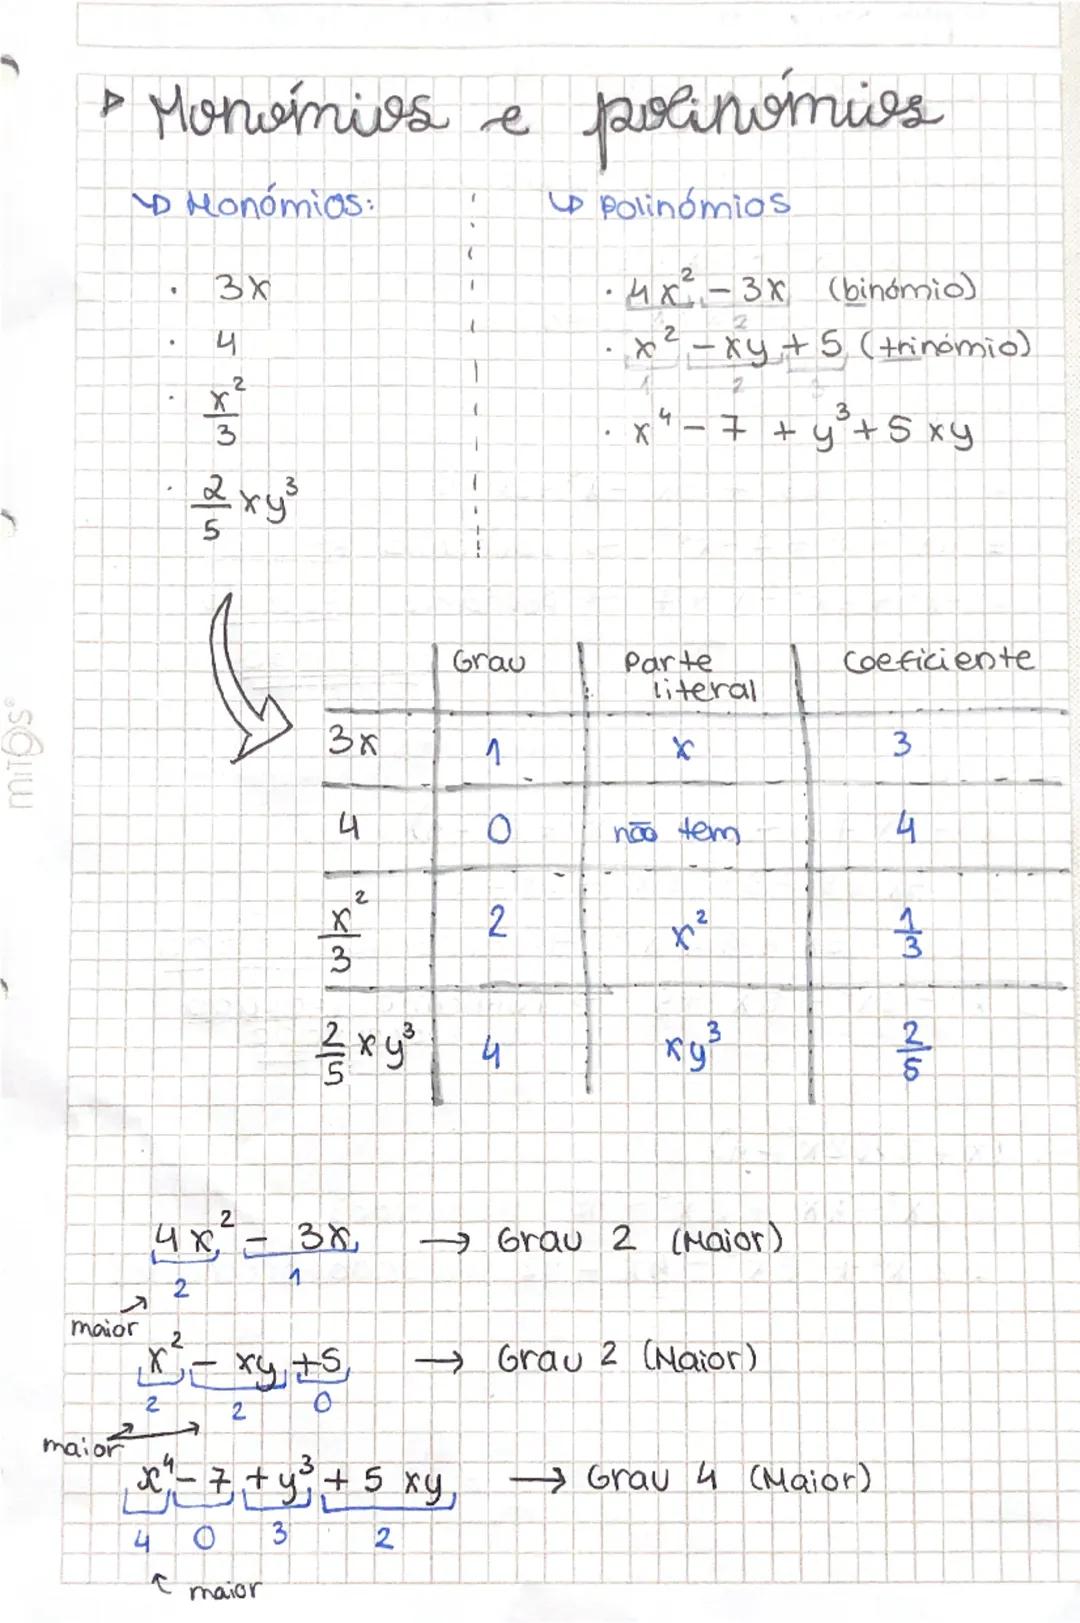 ▷ Monómios e polinómios
↳ Monómios:
· 3x
· 4
· x²/3
· 2/5 xy³
↳ Polinómios
· 4x² - 3x (binómio)
1 2
· x² - xy + 5 (trinómio)
1 2 3
· x⁴ - 7 + y³ + 5 xy
Grau Parte literal Coeficiente
3x 1 x 3
4 0 não tem 4
x²/3 2 x² 1/3
2/5 xy³ 4 xy³ 2/5
4x² - 3x → Grau 2 (Maior)
2 1
maior
x² - xy + 5 → Grau 2 (Maior)
2 2 0
maior
x⁴ - 7 + y³ + 5 xy → Grau 4 (Maior)
4 0 3 2
maior
miTOS®